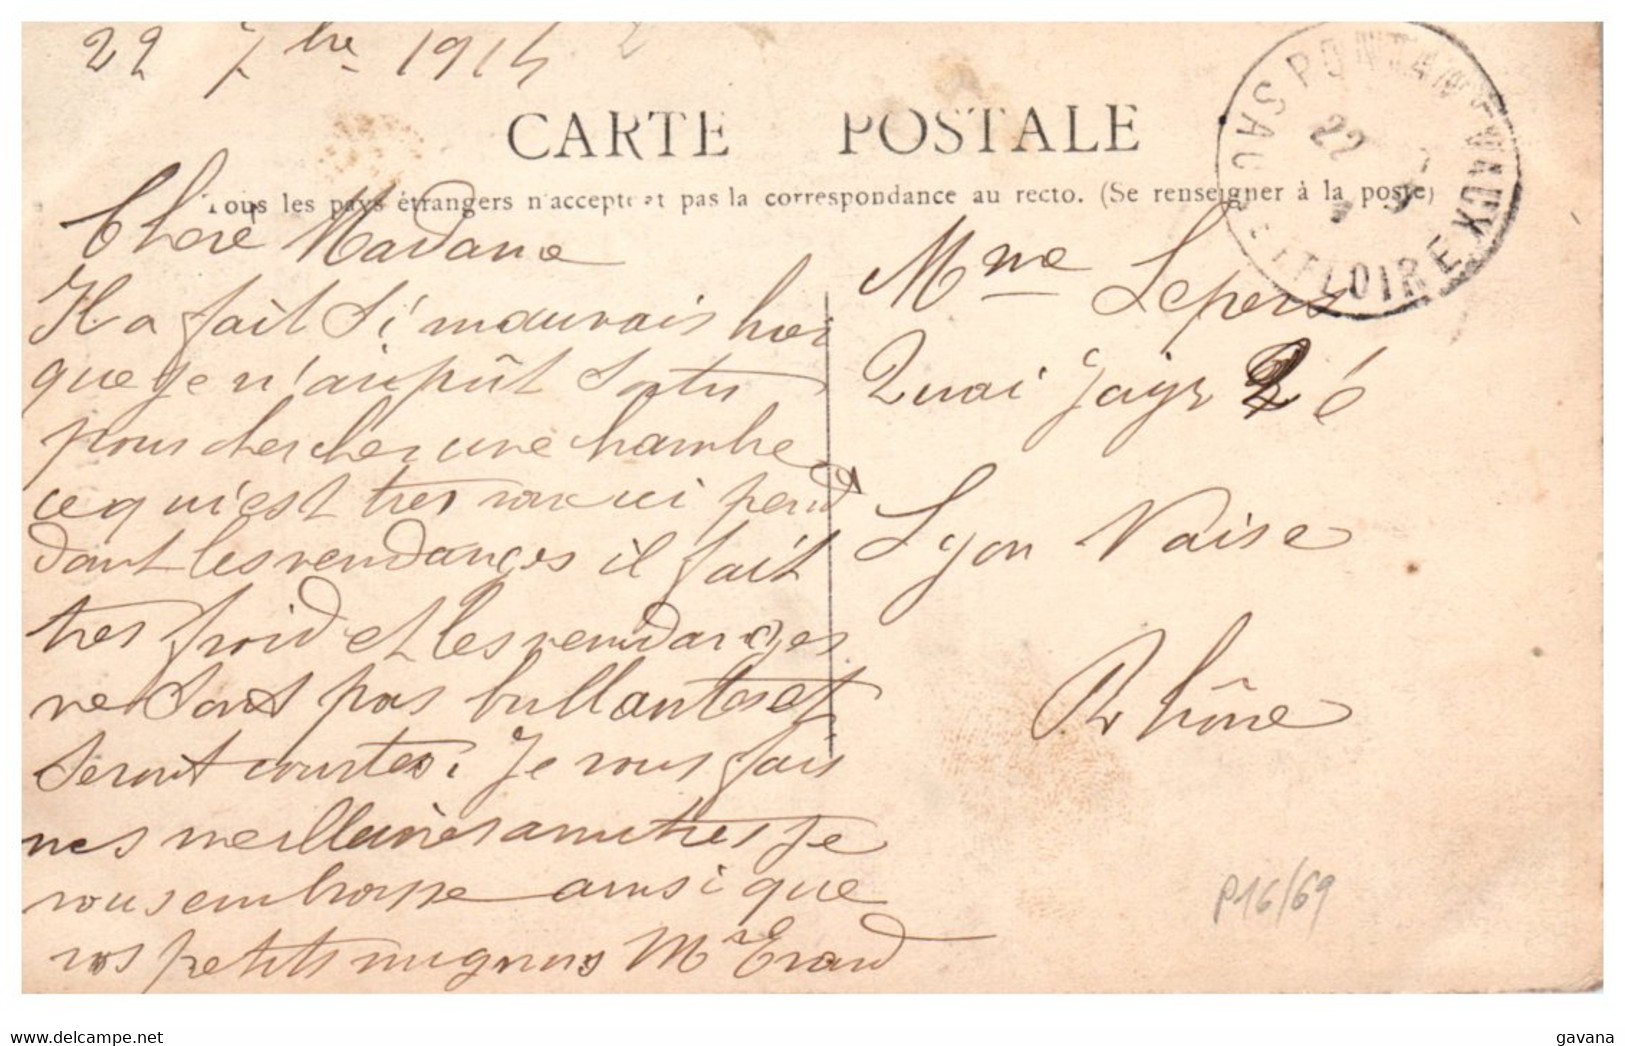 22 7bre 1914
CARTE POSTALE
Tous les pays étrangers n'acceptent pas la correspondance au recto. (Se renseigner à la poste)
PONTANEVAUX
SAONE ET LOIRE
22
9
Chere Madame
Il a fait si mauvais hier
que je n'ai pût sortir
pour chercher une chambre
ce qui est tres rare ici pend
dant les vendanges il fait
tres froid et les vendanges
ne sont pas brillantes et
seront courtes. Je vous fais
mes meilleures amitiés je
vous embrasse ainsi que
vos petits mignons Mr Erard
Mme Lepers
Quai Jayr 2 é
Lyon Vaise
Rhône
P16/69
delcampe.net
gavana